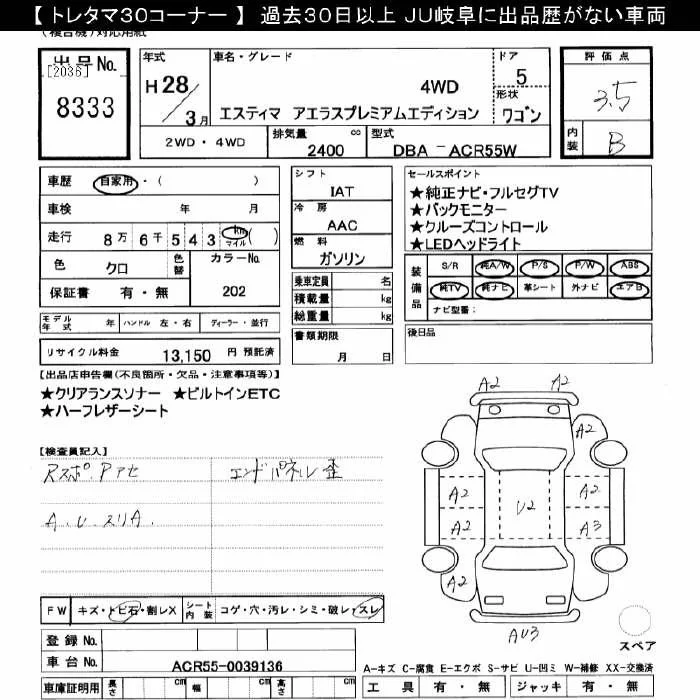 【 トレタマ30コーナー 】 過去30日以上 JU岐阜に出品歴がない車両
出品No.
[2036]
8333
年式
H 28/3月
車名・グレード
4WD
エスティマ アエラスプレミアムエディション
ドア
5
形状
ワゴン
評価点
3.5
内装
B
2WD・4WD
排気量
cc
2400
型式
DBA - ACR55W
車歴 自家用・( )
車検 年 月
走行 8万 6千 5 4 3 km マイル ( )
色 クロ
色替
カラーNo.
202
保証書 有・無
シフト
IAT
冷房
AAC
燃料
ガソリン
乗車定員 名
積載量 kg
総重量 kg
書類期限
月 日
セールスポイント
★純正ナビ・フルセグTV
★バックモニター
★クルーズコントロール
★LEDヘッドライト
装備品
S/R 純A/W P/S P/W ABS
純TV 純ナビ 革シート 外ナビ エアB
ナビ型番:
後日品
モデル年式 年 ハンドル 左・右 ディーラー・並行
リサイクル料金 13,150 円 預託済
【出品店申告欄(不良箇所・欠品・注意事項等)】
★クリアランスソナー ★ビルトインETC
★ハーフレザーシート
【検査員記入】
Rスポ. Pアセ エンドパネル歪
A.U.スリA.
A2 A2
A2
A2 U2 A2
A2 A3
A2
AU3
スペア
FW キズ・トビ石・割レX シート内装 コゲ・穴・汚レ・シミ・破レ・スレ
登録No.
車台No. ACR55-0039136
A-キズ C-腐食 E-エクボ S-サビ U-凹ミ W-補修 XX-交換済
車庫証明用 長さ cm 幅 cm 高さ cm
工具 有・無 ジャッキ 有・無